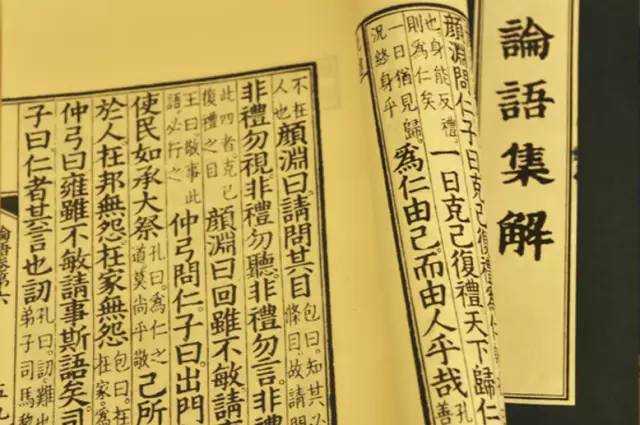 論語集解
顏淵問仁子曰克己復禮
也身能反禮則為仁矣一日克己復禮天下歸仁
一日猶見歸況終身乎為仁由己而由人乎哉孔善
不在人也顏淵曰請問其目包曰知其必條目故請問
非禮勿視非禮勿聽非禮勿言非禮
此四者克己復禮之目顏淵曰回雖不敏請事
王曰敬事此語必行之仲弓問仁子曰出門
使民如承大祭孔曰為仁之道莫尚乎敬己所
於人在邦無怨在家無怨包曰在在家為
仲弓曰雍雖不敏請事斯語矣司
子曰仁者其言也訒孔曰訒難弟子司馬